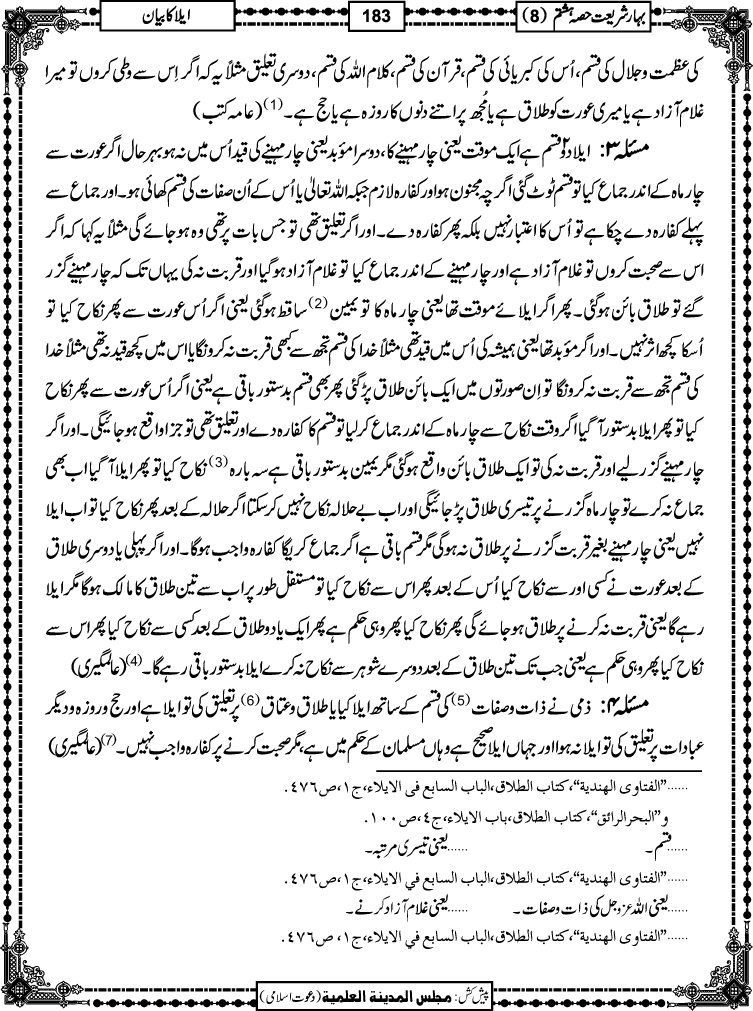 بہارشریعت حصہ ہشتم (8)
183
ایلا کا بیان
کی عظمت و جلال کی قسم، اُس کی کبریائی کی قسم، قرآن کی قسم، کلام اللہ کی قسم، دوسری تعلیق مثلاً یہ کہ اگر اِس سے وطی کروں تو میرا
غلام آزاد ہے یا میری عورت کو طلاق ہے یا مُجھ پر اتنے دنوں کا روزہ ہے یا حج ہے۔ (1) (عامہ کتب)
مسئلہ ۳: ایلا دو قسم ہے ایک موقت یعنی چار مہینے کا، دوسرا مؤبد یعنی چار مہینے کی قید اُس میں نہ ہو بہر حال اگر عورت سے
چار ماہ کے اندر جماع کیا تو قسم ٹوٹ گئی اگرچہ مجنون ہو اور کفارہ لازم جبکہ اللہ تعالیٰ یا اُس کے اُن صفات کی قسم کھائی ہو۔ اور جماع سے
پہلے کفارہ دے چکا ہے تو اُس کا اعتبار نہیں بلکہ پھر کفارہ دے۔ اور اگر تعلیق تھی تو جس بات پر تھی وہ ہو جائے گی مثلاً یہ کہا کہ اگر
اس سے صحبت کروں تو غلام آزاد ہے اور چار مہینے کے اندر جماع کیا تو غلام آزاد ہو گیا اور قربت نہ کی یہاں تک کہ چار مہینے گزر
گئے تو طلاق بائن ہو گئی۔ پھر اگر ایلائے موقت تھا یعنی چار ماہ کا تو یمین (2) ساقط ہو گئی یعنی اگر اُس عورت سے پھر نکاح کیا تو
اُسکا کچھ اثر نہیں۔ اور اگر مؤبد تھا یعنی ہمیشہ کی اُس میں قید تھی مثلاً خدا کی قسم تجھ سے کبھی قربت نہ کرونگا یا اس میں کچھ قید نہ تھی مثلاً خدا
کی قسم تجھ سے قربت نہ کرونگا تو اِن صورتوں میں ایک بائن طلاق پڑ گئی پھر بھی قسم بدستور باقی ہے یعنی اگر اُس عورت سے پھر نکاح
کیا تو پھر ایلا بدستور آ گیا اگر وقت نکاح سے چار ماہ کے اندر جماع کر لیا تو قسم کا کفارہ دے اور تعلیق تھی تو جزا واقع ہو جائیگی۔ اور اگر
چار مہینے گزر لیے اور قربت نہ کی تو ایک طلاق بائن واقع ہو گئی مگر یمین بدستور باقی ہے سہ بارہ (3) نکاح کیا تو پھر ایلا آ گیا اب بھی
جماع نہ کرے تو چار ماہ گزرنے پر تیسری طلاق پڑ جائیگی اور اب بے حلالہ نکاح نہیں کر سکتا اگر حلالہ کے بعد پھر نکاح کیا تو اب ایلا
نہیں یعنی چار مہینے بغیر قربت گزرنے پر طلاق نہ ہوگی مگر قسم باقی ہے اگر جماع کریگا کفارہ واجب ہوگا۔ اور اگر پہلی یا دوسری طلاق
کے بعد عورت نے کسی اور سے نکاح کیا اُس کے بعد پھر اس سے نکاح کیا تو مستقل طور پر اب سے تین طلاق کا مالک ہوگا مگر ایلا
رہے گا یعنی قربت نہ کرنے پر طلاق ہو جائے گی پھر نکاح کیا پھر وہی حکم ہے پھر ایک یا دو طلاق کے بعد کسی سے نکاح کیا پھر اس سے
نکاح کیا پھر وہی حکم ہے یعنی جب تک تین طلاق کے بعد دوسرے شوہر سے نکاح نہ کرے ایلا بدستور باقی رہے گا۔ (4) (عالمگیری)
مسئلہ ۴: ذمی نے ذات و صفات (5) کی قسم کے ساتھ ایلا کیا یا طلاق و عتاق (6) پر تعلیق کی تو ایلا ہے اور حج و روزہ و دیگر
عبادات پر تعلیق کی تو ایلا نہ ہوا اور جہاں ایلا صحیح ہے وہاں مسلمان کے حکم میں ہے، مگر صحبت کرنے پر کفارہ واجب نہیں۔ (7) (عالمگیری)
......"الفتاوی الھندیة"، کتاب الطلاق، الباب السابع فی الایلاء، ج ١، ص ٤٧٦.
و"البحرالرائق"، کتاب الطلاق، باب الایلاء، ج ٤، ص ١٠٠.
......قسم۔ ......یعنی تیسری مرتبہ۔
......"الفتاوی الھندیة"، کتاب الطلاق، الباب السابع في الایلاء، ج ١، ص ٤٧٦.
......یعنی اللہ عزوجل کی ذات و صفات۔ ......یعنی غلام آزاد کرنے۔
......"الفتاوی الھندیة"، کتاب الطلاق، الباب السابع في الایلاء، ج ١، ص ٤٧٦.
پیش کش: مجلس المدینة العلمیة (دعوت اسلامی)